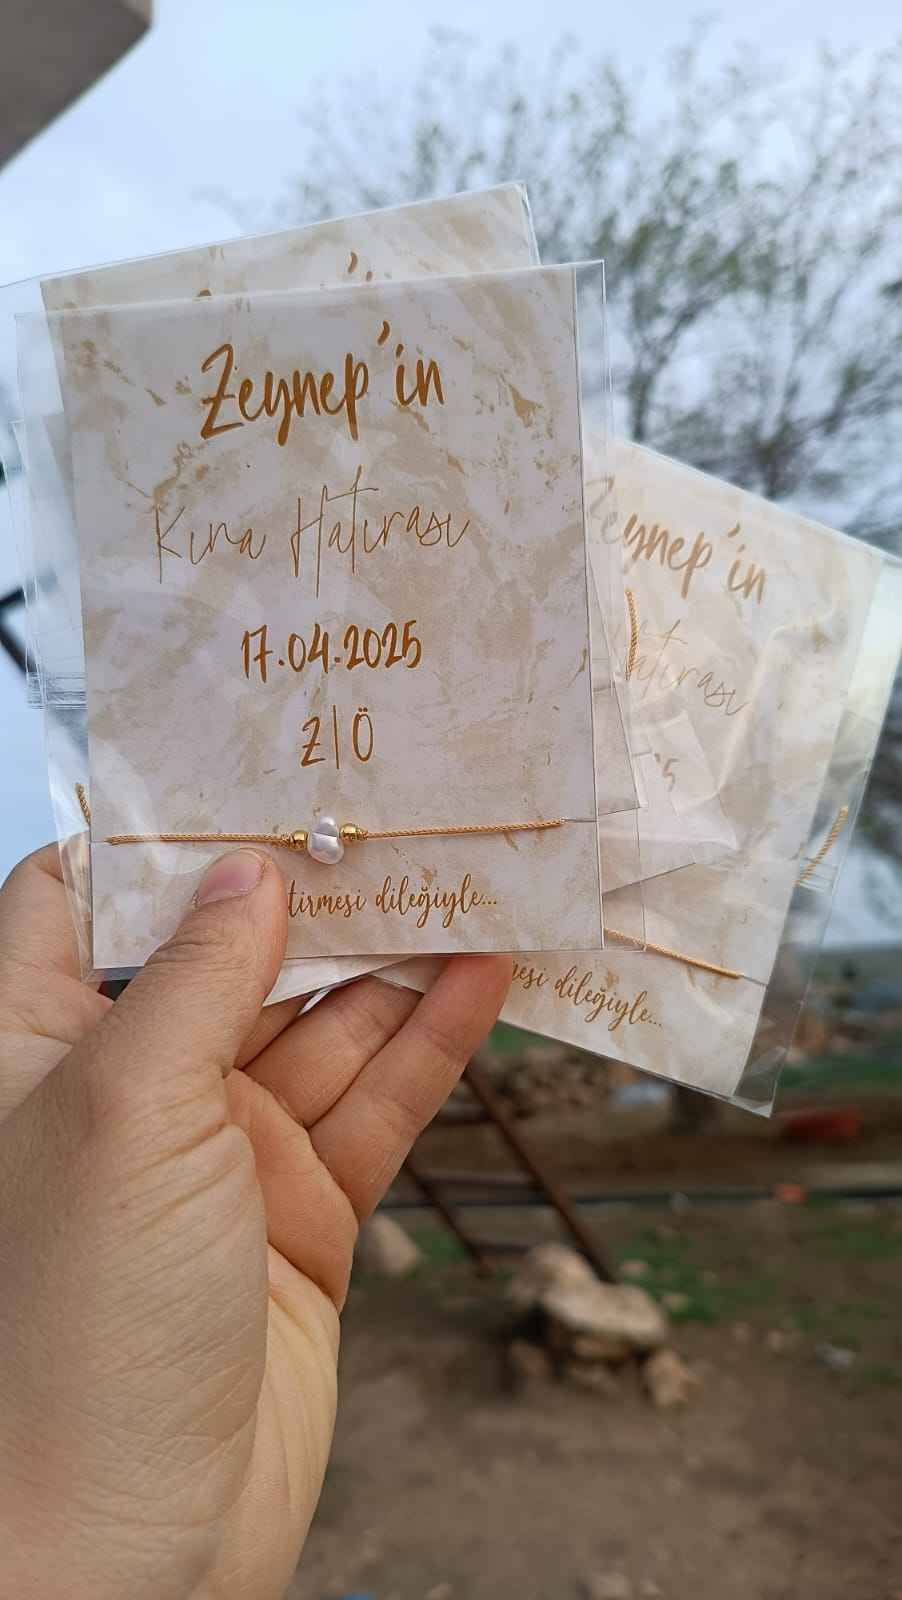 Zeynep'in
Kına Hatırası
17.04.2025
Z|Ö
dileğiyle...
Zeynep'in
Hatırası
dileğiyle...